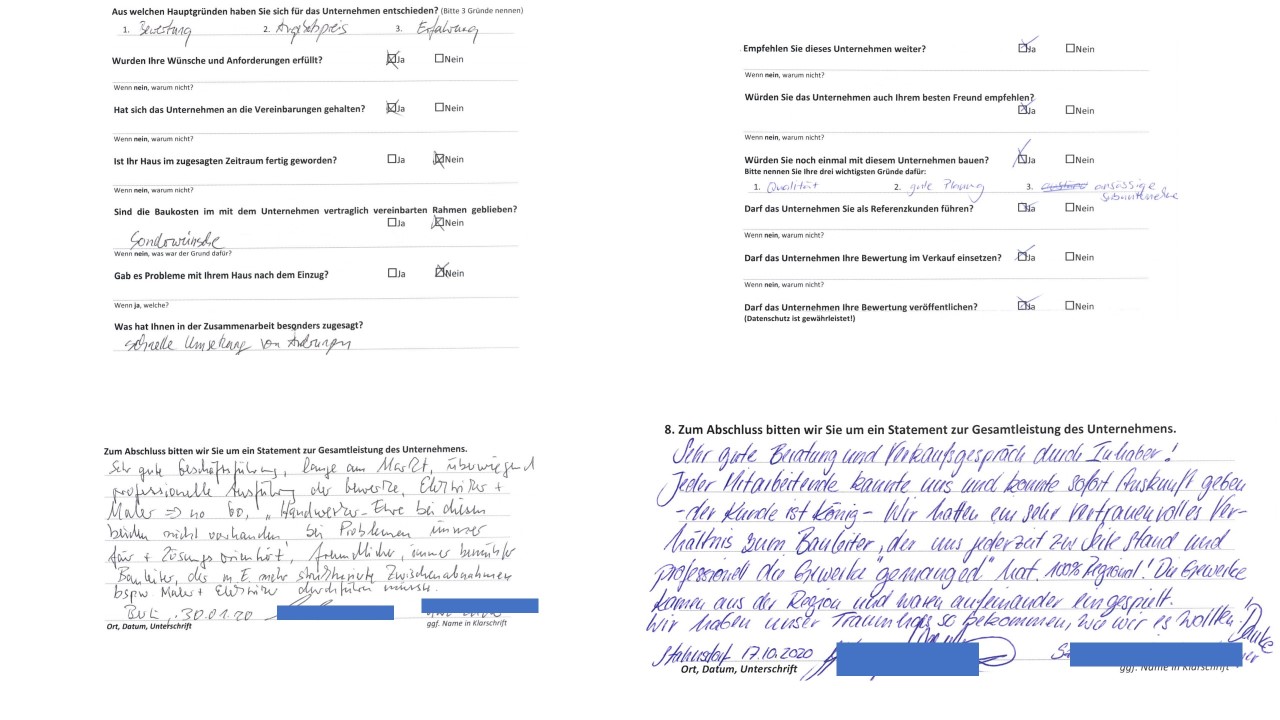 Aus welchen Hauptgründen haben Sie sich für das Unternehmen entschieden? (Bitte 3 Gründe nennen)
1. Bewertung 2. Angebotspreis 3. Erfahrung
Wurden Ihre Wünsche und Anforderungen erfüllt? Ja Nein
Wenn nein, warum nicht?
Hat sich das Unternehmen an die Vereinbarungen gehalten? Ja Nein
Wenn nein, warum nicht?
Ist Ihr Haus im zugesagten Zeitraum fertig geworden? Ja Nein
Wenn nein, warum nicht?
Sind die Baukosten im mit dem Unternehmen vertraglich vereinbarten Rahmen geblieben?
Ja Nein
Sonderwünsche
Wenn nein, was war der Grund dafür?
Gab es Probleme mit Ihrem Haus nach dem Einzug? Ja Nein
Wenn ja, welche?
Was hat Ihnen in der Zusammenarbeit besonders zugesagt?
schnelle Umsetzung von Änderungen
Empfehlen Sie dieses Unternehmen weiter? Ja Nein
Wenn nein, warum nicht?
Würden Sie das Unternehmen auch Ihrem besten Freund empfehlen?
Ja Nein
Wenn nein, warum nicht?
Würden Sie noch einmal mit diesem Unternehmen bauen? Ja Nein
Bitte nennen Sie Ihre drei wichtigsten Gründe dafür:
1. Qualität 2. gute Planung 3. ansässige
Darf das Unternehmen Sie als Referenzkunden führen? Ja Nein
Wenn nein, warum nicht?
Darf das Unternehmen Ihre Bewertung im Verkauf einsetzen? Ja Nein
Wenn nein, warum nicht?
Darf das Unternehmen Ihre Bewertung veröffentlichen? Ja Nein
(Datenschutz ist gewährleistet!)
Zum Abschluss bitten wir Sie um ein Statement zur Gesamtleistung des Unternehmens.
Sehr gute Geschäftsführung, lange am Markt, überwiegend
professionelle Ausführung der Gewerke, Elektriker +
Maler => no go, "Handwerker-Ehre bei diesen
beiden nicht vorhanden, bei Problemen immer
fair + Lösungsorientiert, freundlicher, immer bemühter
Bauleiter, der m.E. mehr Zwischenabnahmen
bspw. Maler + Elektriker durchführen müsste.
30.01.20
Ort, Datum, Unterschrift ggf. Name in Klarschrift
8. Zum Abschluss bitten wir Sie um ein Statement zur Gesamtleistung des Unternehmens.
Sehr gute Beratung und Verkaufsgespräch durch Inhaber!
Jeder Mitarbeitende kannte uns und konnte sofort Auskunft geben
- der Kunde ist König - Wir hatten ein sehr vertrauenvolles Ver-
hältnis zum Bauleiter, der uns jederzeit zur Seite stand und
professionell die Gewerke "gemanged" hat. 100% Regional! Die Gewerke
kamen aus der Region und waren aufeinander eingespielt.
Wir haben unser Traumhaus so bekommen, wie wir es wollten. Danke
Stahnsdorf 17.10.2020
Ort, Datum, Unterschrift ggf. Name in Klarschrift